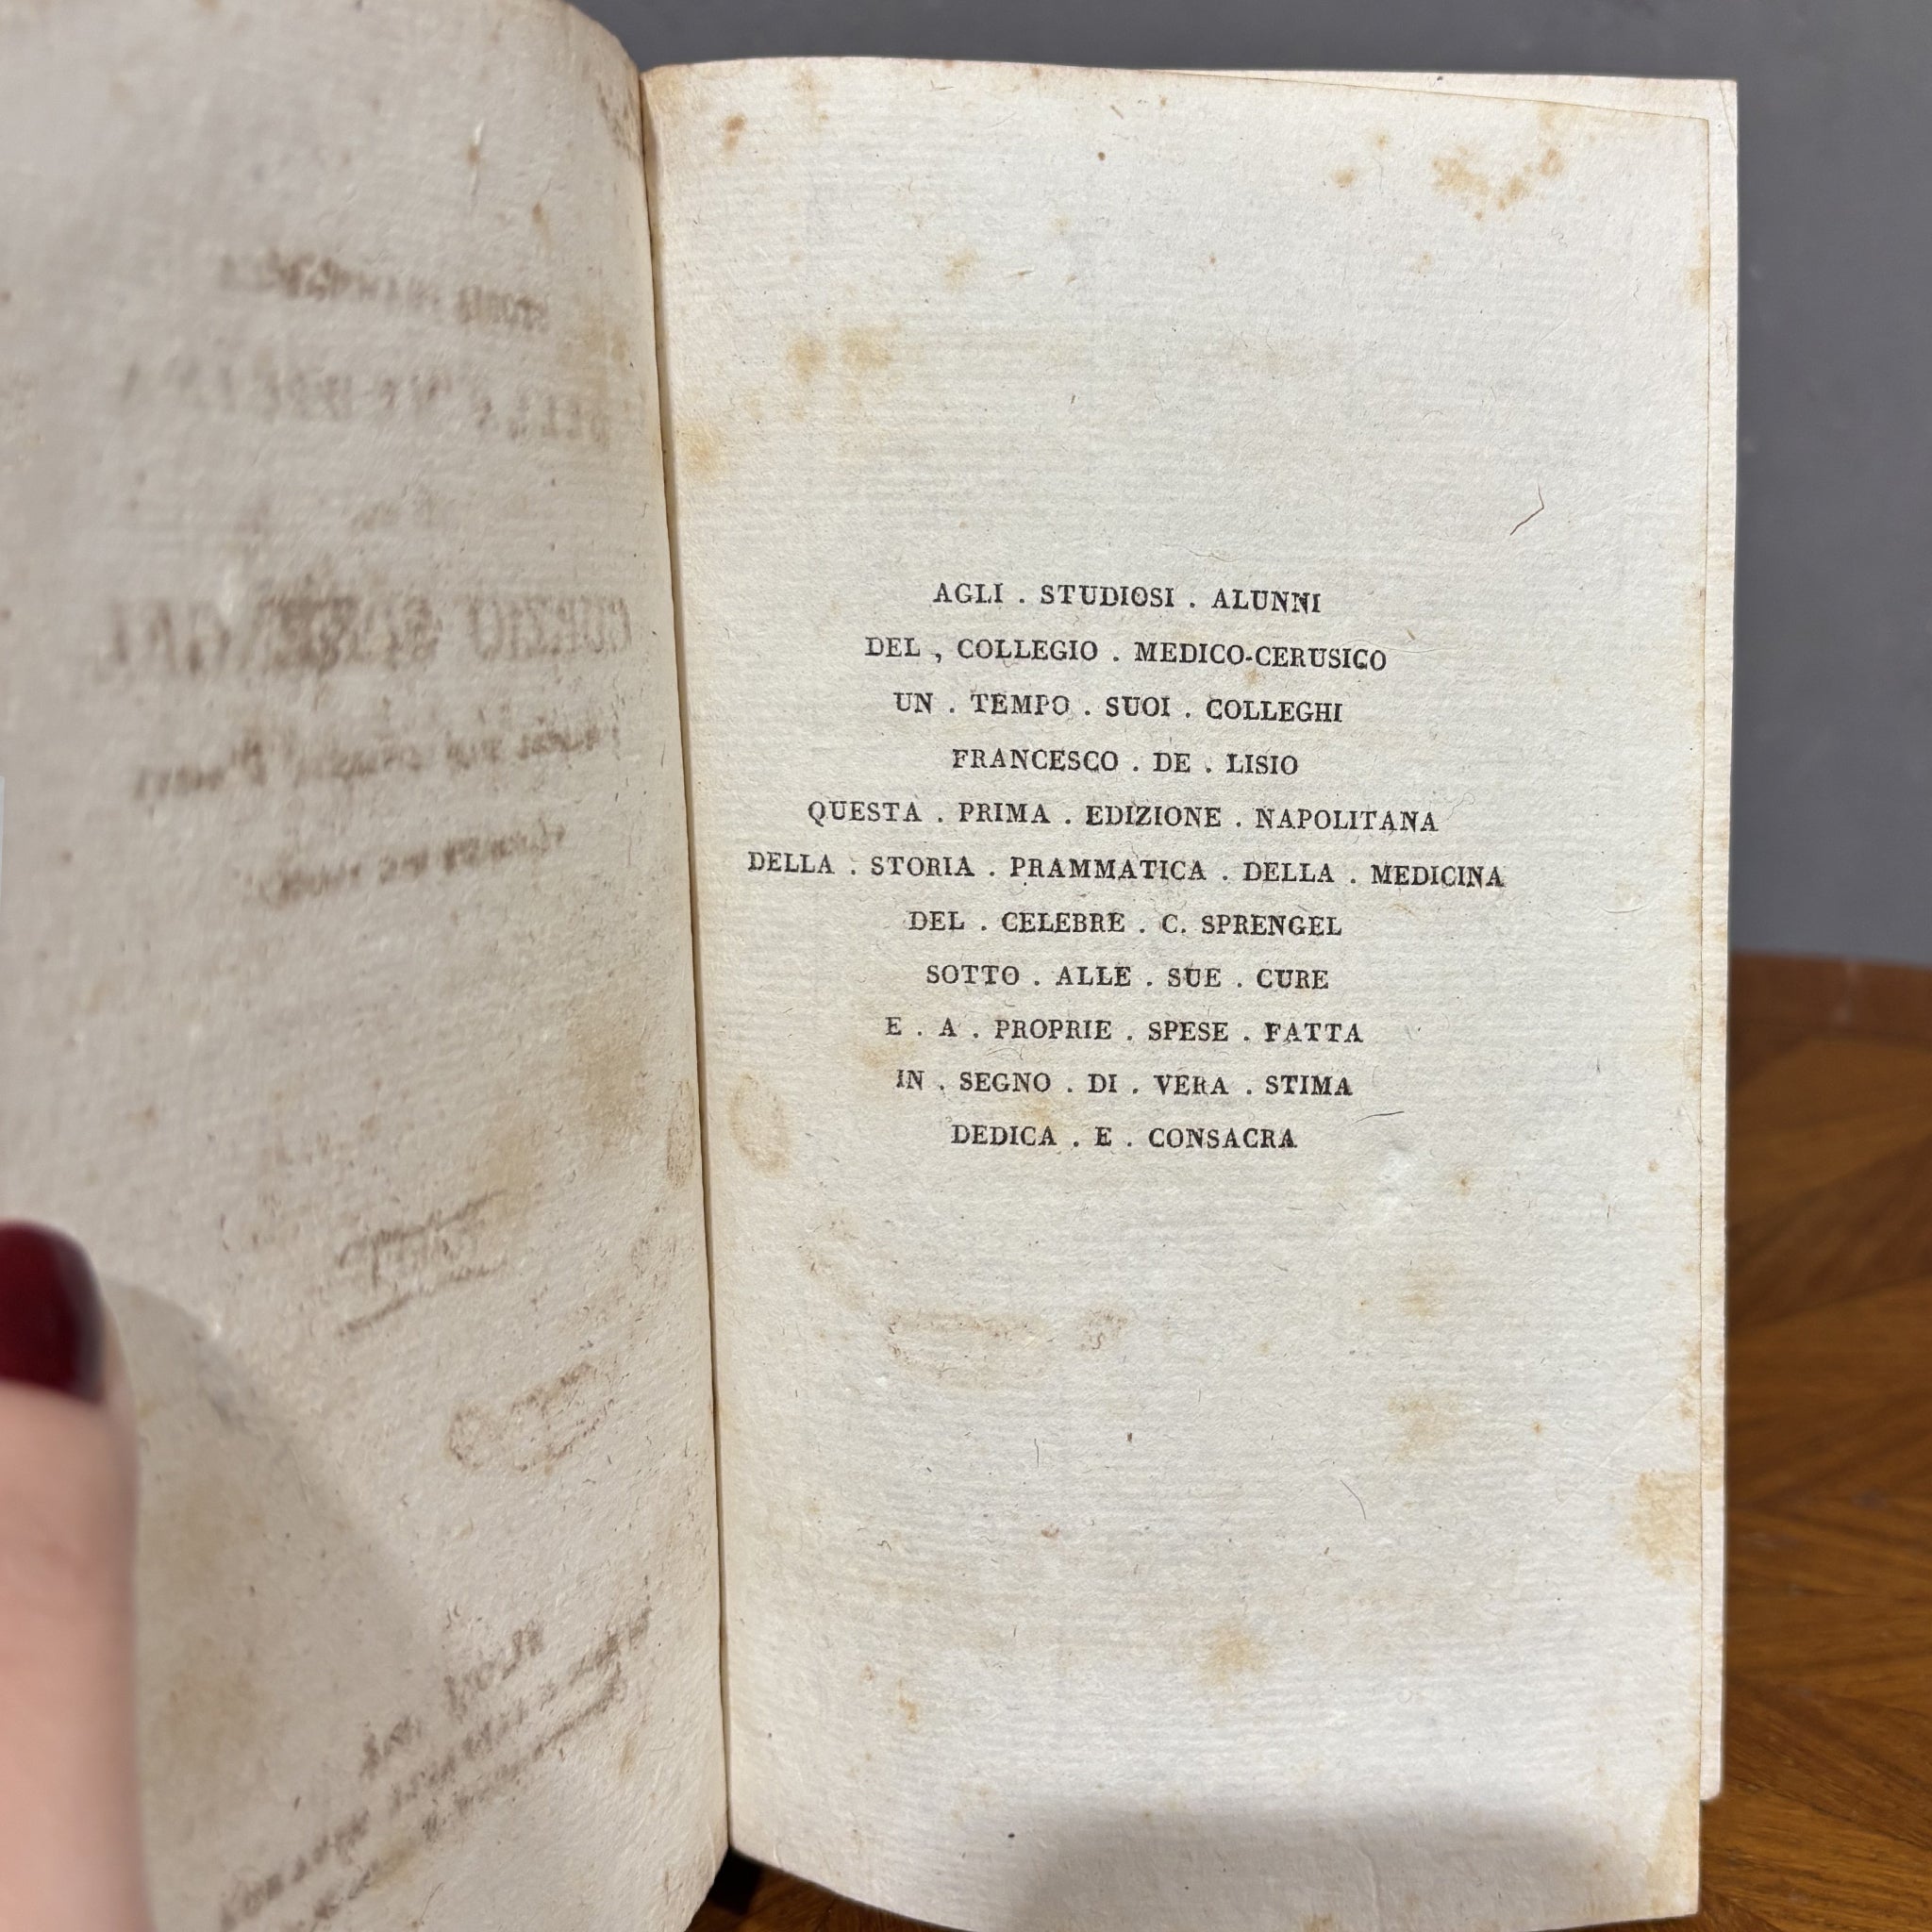 AGLI . STUDIOSI . ALUNNI
DEL , COLLEGIO . MEDICO-CERUSICO
UN . TEMPO . SUOI . COLLEGHI
FRANCESCO . DE . LISIO
QUESTA . PRIMA . EDIZIONE . NAPOLITANA
DELLA . STORIA . PRAMMATICA . DELLA . MEDICINA
DEL . CELEBRE . C. SPRENGEL
SOTTO . ALLE . SUE . CURE
E . A . PROPRIE . SPESE . FATTA
IN . SEGNO . DI . VERA . STIMA
DEDICA . E . CONSACRA